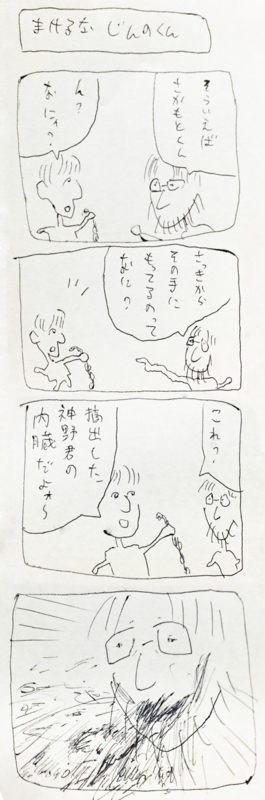 まけるな じんのくん
そういえば
さかもとくん
ん?
なにィ?
さっきから
その手に
もってるのって
なに?
これっ?
摘出した
神野君の
内臓だよォ〜